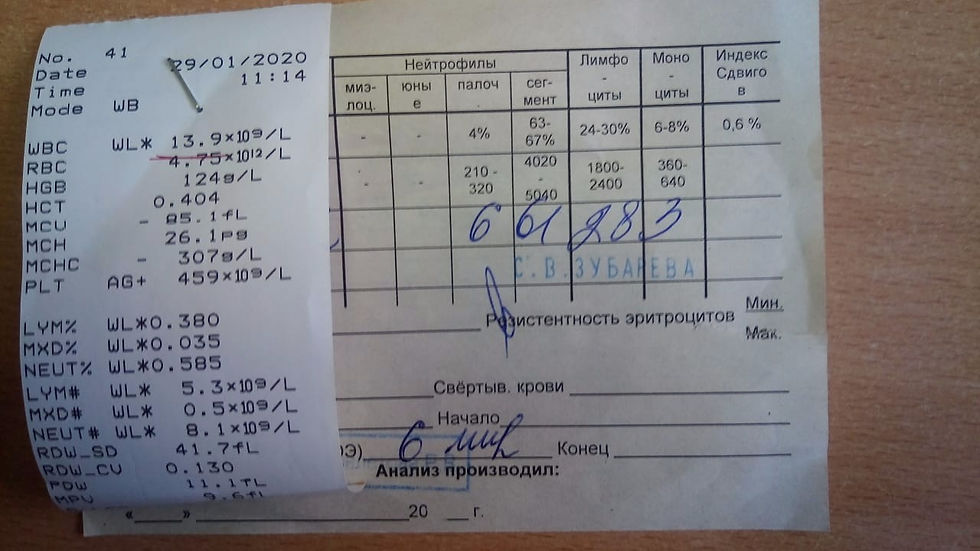 No. 41
Date 29/01/2020
Time 11:14
Mode WB
WBC WL* 13.9×10⁹/L
RBC 4.75×10¹²/L
HGB 124g/L
HCT 0.404
MCV - 85.1fL
MCH 26.1pg
MCHC - 307g/L
PLT AG+ 459×10⁹/L
LYM% WL*0.380
MXD% WL*0.035
NEUT% WL*0.585
LYM# WL* 5.3×10⁹/L
MXD# WL* 0.5×10⁹/L
NEUT# WL* 8.1×10⁹/L
RDW_SD 41.7fL
RDW_CV 0.130
PDW 11.1fL
MPV 9.6fL
Нейтрофилы
Лимфо
-
циты
Моно
-
циты
Индекс
Сдвиго
в
миэ-
лоц.
юны
е
палоч
.
сег-
мент
- - 4% 63-67% 24-30% 6-8% 0,6 %
- - 210 - 320 4020 - 5040 1800-2400 360-640
6 61 28 3
С.В.ЗУБАРЕВА
Резистентность эритроцитов Мин.
Мак.
Свёртыв. крови
Начало
ОЭ) 6 мм Конец
Анализ производил:
«____» ____ 20 __ г.